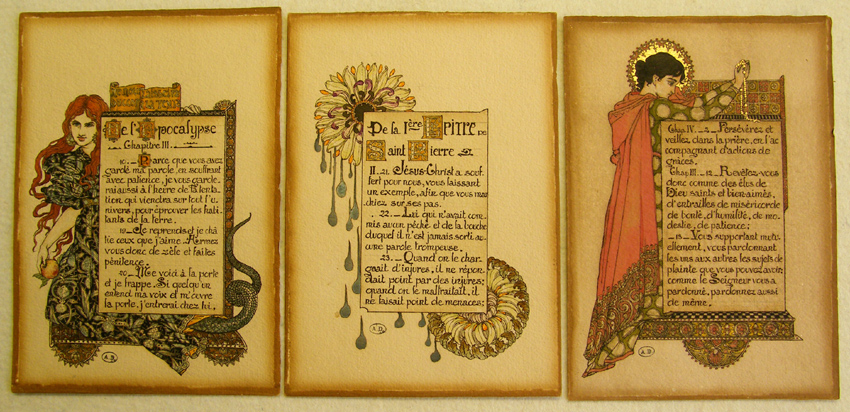 De l'Apocalypse
Chapitre III.
10._ Parce que vous avez
gardé ma parole, en souffrant
avec patience, je vous garde-
rai aussi à l'heure de la tenta-
tion, qui viendra sur tout l'u-
nivers, pour éprover les habi-
tants de la terre.
19._ Je reprends et je châ-
tie ceux que j'aime. Armez
vous donc de zèle et faites
pénitence.
20._ Me voici à la porte
et je frappe. Si quelqu'un
entend ma voix et m'ouvre
la porte, j'entrerai chez lui.
A.D.
De la 1ère Epitre de
Saint Pierre
II._21. Jésus-Christ a souf-
fert pour nous, vous laissant
un exemple, afin que vous mar-
chiez sur ses pas.
_22._ Lui qui n'avait com-
mis aucun péché et de la bouche
duquel il n'est jamais sorti au-
cune parole trompeuse.
23._ Quand on le char-
geait d'injures, il ne répon-
dait point par des injures;
quand on le maltraitait, il
ne faisait point de menaces:
A.D.
Chap. IV._2._ Persévérez et
veillez dans la prière, en l'ac-
compagnant d'actions de
grâces.
Chap. III._12._ Revêtez-vous
donc comme des élus de
Dieu saints et bien-aimés,
d'entrailles de miséricorde
de bonté, d'humilité, de mo-
destie, de patience;
_13._ Vous supportant mutu-
ellement, vous pardonnant
les uns aux autres les sujets de
plainte que vous pouvez avoir;
comme le Seigneur vous a
pardonné, pardonnez aussi
de même.
A.D.